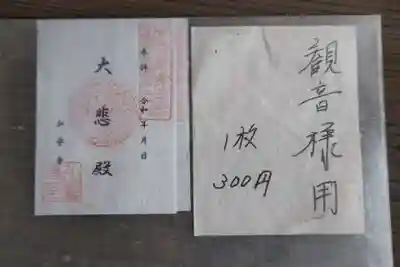 奉拝 令和 年 月 日
大悲殿
観音様用
1枚
300円